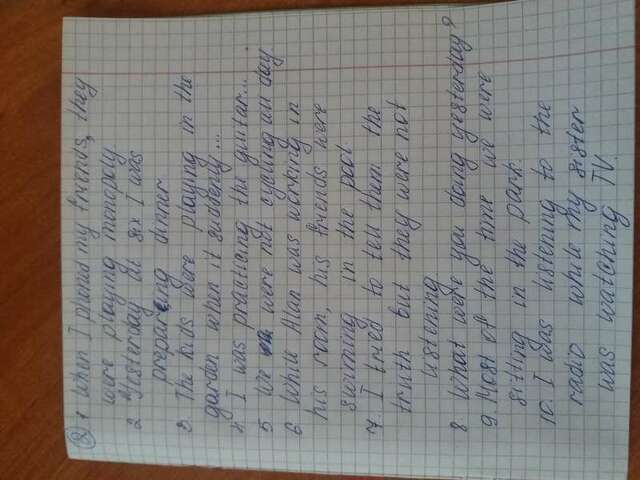 2 1 When I phoned my friends, they
were playing monopoly.
2 Yesterday at six I was
preparing dinner
3. The kids were playing in the
garden when it suddenly...
4. I was practicing the guitar...
5 We were not cycling all day.
6 While Alan was working in
his room, his friends were
swiming in the pool.
7. I tried to tell them the
truth but they were not
listening.
8 What were you doing yesterday?
9. Most of the time we were
sitting in the park.
10. I was listening to the
radio while my sister
was watching TV.